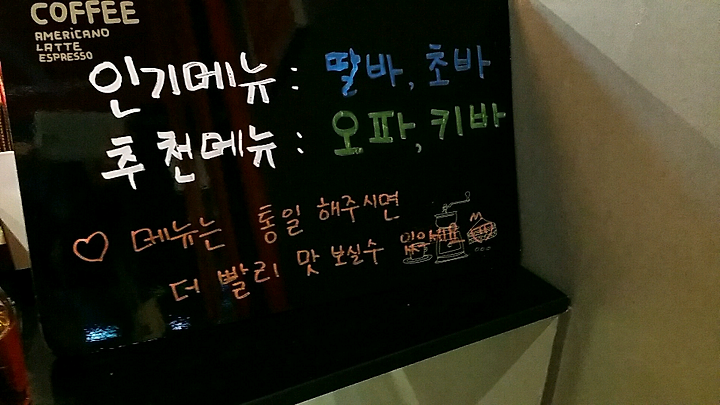 COFFEE
AMERICANO
LATTE
ESPRESSO
인기메뉴 : 딸바, 초바
추천메뉴 : 오파, 키바
♡ 메뉴는 통일 해주시면
더 빨리 맛 보실수